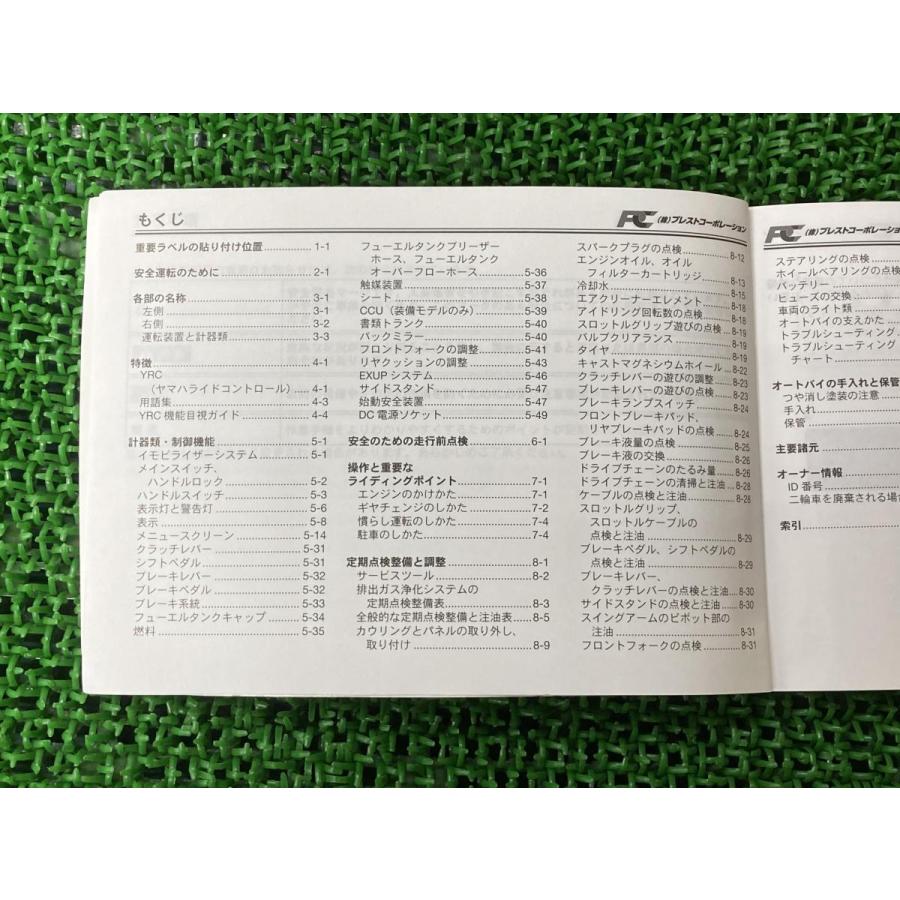 もくじ
PC (株)プレストコーポレーション
重要ラベルの貼り付け位置 1-1
安全運転のために 2-1
各部の名称 3-1
左側 3-1
右側 3-2
運転装置と計器類 3-3
特徴 4-1
YRC
（ヤマハライドコントロール） 4-1
用語集 4-3
YRC 機能目視ガイド 4-4
計器類・制御機能 5-1
イモビライザーシステム 5-1
メインスイッチ、
ハンドルロック 5-2
ハンドルスイッチ 5-3
表示灯と警告灯 5-6
表示 5-8
メニュースクリーン 5-14
クラッチレバー 5-31
シフトペダル 5-31
ブレーキレバー 5-32
ブレーキペダル 5-32
ブレーキ系統 5-33
フューエルタンクキャップ 5-34
燃料 5-35
フューエルタンクブリーザー
ホース、フューエルタンク
オーバーフローホース 5-36
触媒装置 5-37
シート 5-38
CCU（装備モデルのみ） 5-39
書類トランク 5-40
バックミラー 5-40
フロントフォークの調整 5-41
リヤクッションの調整 5-43
EXUP システム 5-46
サイドスタンド 5-47
始動安全装置 5-47
DC 電源ソケット 5-49
安全のための走行前点検 6-1
操作と重要な
ライディングポイント 7-1
エンジンのかけかた 7-1
ギヤチェンジのしかた 7-2
慣らし運転のしかた 7-4
駐車のしかた 7-4
定期点検整備と調整 8-1
サービスツール 8-2
排出ガス浄化システムの
定期点検整備表 8-3
全般的な定期点検整備と注油表 8-5
カウリングとパネルの取り外し、
取り付け 8-9
スパークプラグの点検 8-12
エンジンオイル、オイル
フィルターカートリッジ 8-13
冷却水 8-15
エアクリーナーエレメント 8-18
アイドリング回転数の点検 8-18
スロットルグリップ遊びの点検 8-19
バルブクリアランス 8-19
タイヤ 8-19
キャストマグネシウムホイール 8-22
クラッチレバーの遊びの調整 8-23
ブレーキレバーの遊びの点検 8-23
ブレーキランプスイッチ 8-24
フロントブレーキパッド、
リヤブレーキパッドの点検 8-24
ブレーキ液量の点検 8-25
ブレーキ液の交換 8-26
ドライブチェーンのたるみ量 8-26
ドライブチェーンの清掃と注油 8-28
ケーブルの点検と注油 8-28
スロットルグリップ、
スロットルケーブルの
点検と注油 8-29
ブレーキペダル、シフトペダルの
点検と注油 8-29
ブレーキレバー、
クラッチレバーの点検と注油 8-30
サイドスタンドの点検と注油 8-30
スイングアームのピボット部の
注油 8-31
フロントフォークの点検 8-31
PC (株)プレストコーポレーション
ステアリングの点検
ホイールベアリングの点検
バッテリー
ヒューズの交換
車両のライト類
オートバイの支えかた
トラブルシューティング
トラブルシューティング
チャート
オートバイの手入れと保管
つや消し塗装の注意
手入れ
保管
主要諸元
オーナー情報
ID 番号
二輪車を廃棄される場合
索引